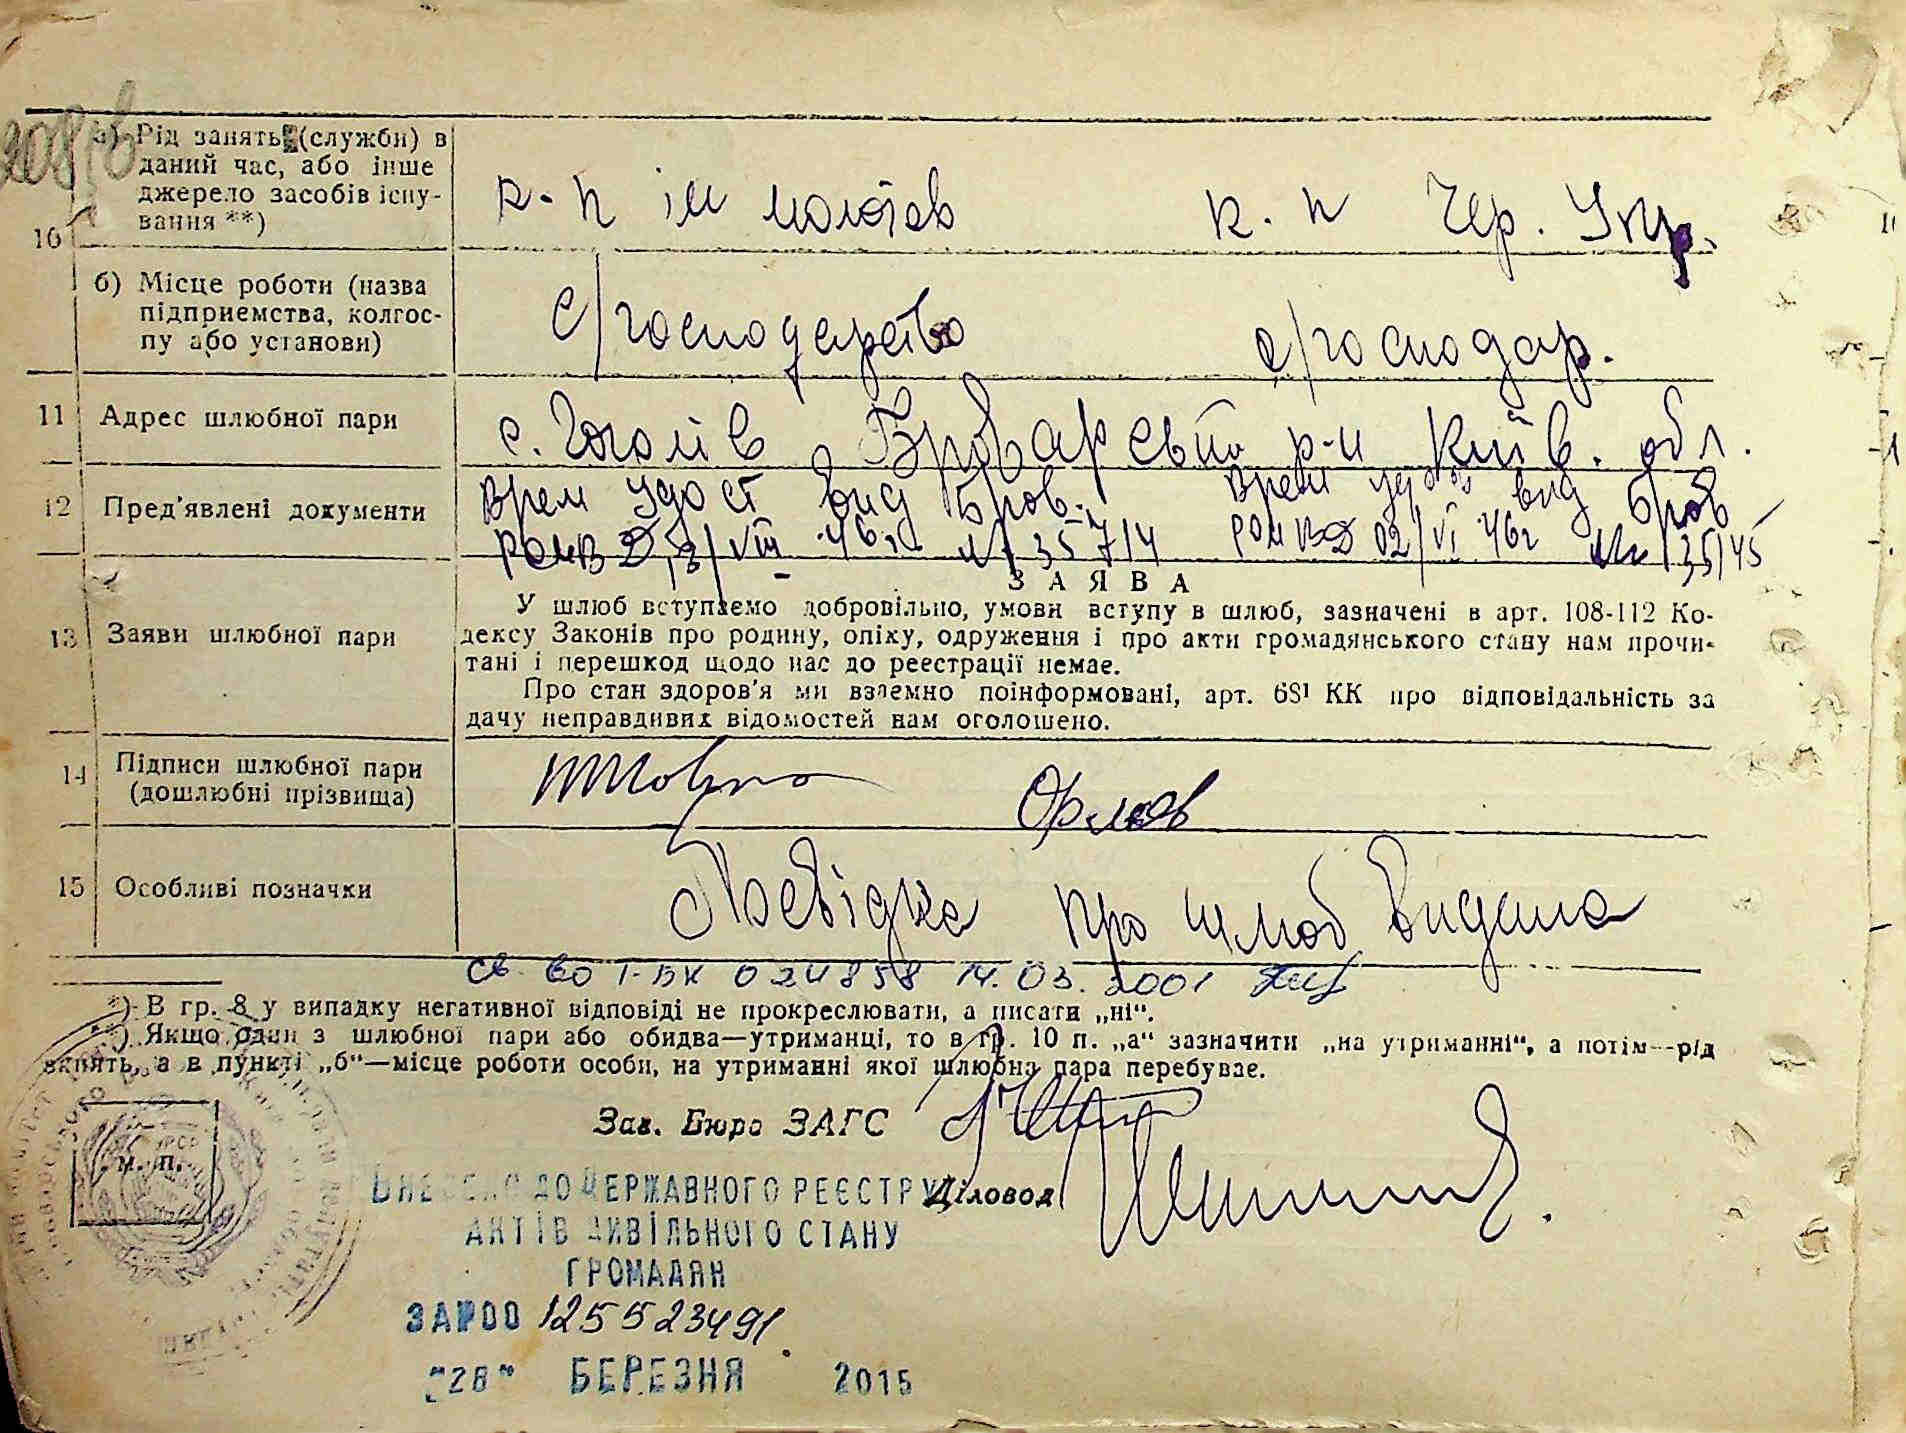 208 зв
а) Рід занять (служби) в
даний час, або інше
джерело засобів існу-
вання **)
10
к-п ім Молотов
к. п Чер. Укр.
б) Місце роботи (назва
підприємства, колгос-
пу або установи)
с/господарство
с/господар.
11 Адрес шлюбної пари
с. Гоголів Броварський р-н Київ. обл.
12 Пред'явлені документи
Врем удост вид Бров.
РОМВД /VIII 46г № 35714
Врем уд вид Бров
РОМВД 02/VI 46г № 35145
ЗАЯВА
13 Заяви шлюбної пари
У шлюб вступаємо добровільно, умови вступу в шлюб, зазначені в арт. 108-112 Ко-
дексу Законів про родину, опіку, одруження і про акти громадянського стану нам прочи-
тані і перешкод щодо нас до реєстрації немає.
Про стан здоров'я ми взаємно поінформовані, арт. 68¹ КК про відповідальність за
дачу неправдивих відомостей нам оголошено.
14 Підписи шлюбної пари
(дошлюбні прізвища)
Орлов
15 Особливі позначки
Посвідка про шлюб видана
св. во I-БК 024858 14.03.2001
*) В гр. 8 у випадку негативної відповіді не прокреслювати, а писати „ні“.
**) Якщо один з шлюбної пари або обидва—утриманці, то в гр. 10 п. „а“ зазначити „на утриманні“, а потім—рід
занять, а в пункті „б“—місце роботи особи, на утриманні якої шлюбна пара перебуває.
Зав. Бюро ЗАГС
м. п.
Діловод
ВНЕСЕНО ДО ДЕРЖАВНОГО РЕЄСТРУ
АКТІВ ЦИВІЛЬНОГО СТАНУ
ГРОМАДЯН
ЗА №00 125523491
"28" БЕРЕЗНЯ 2015